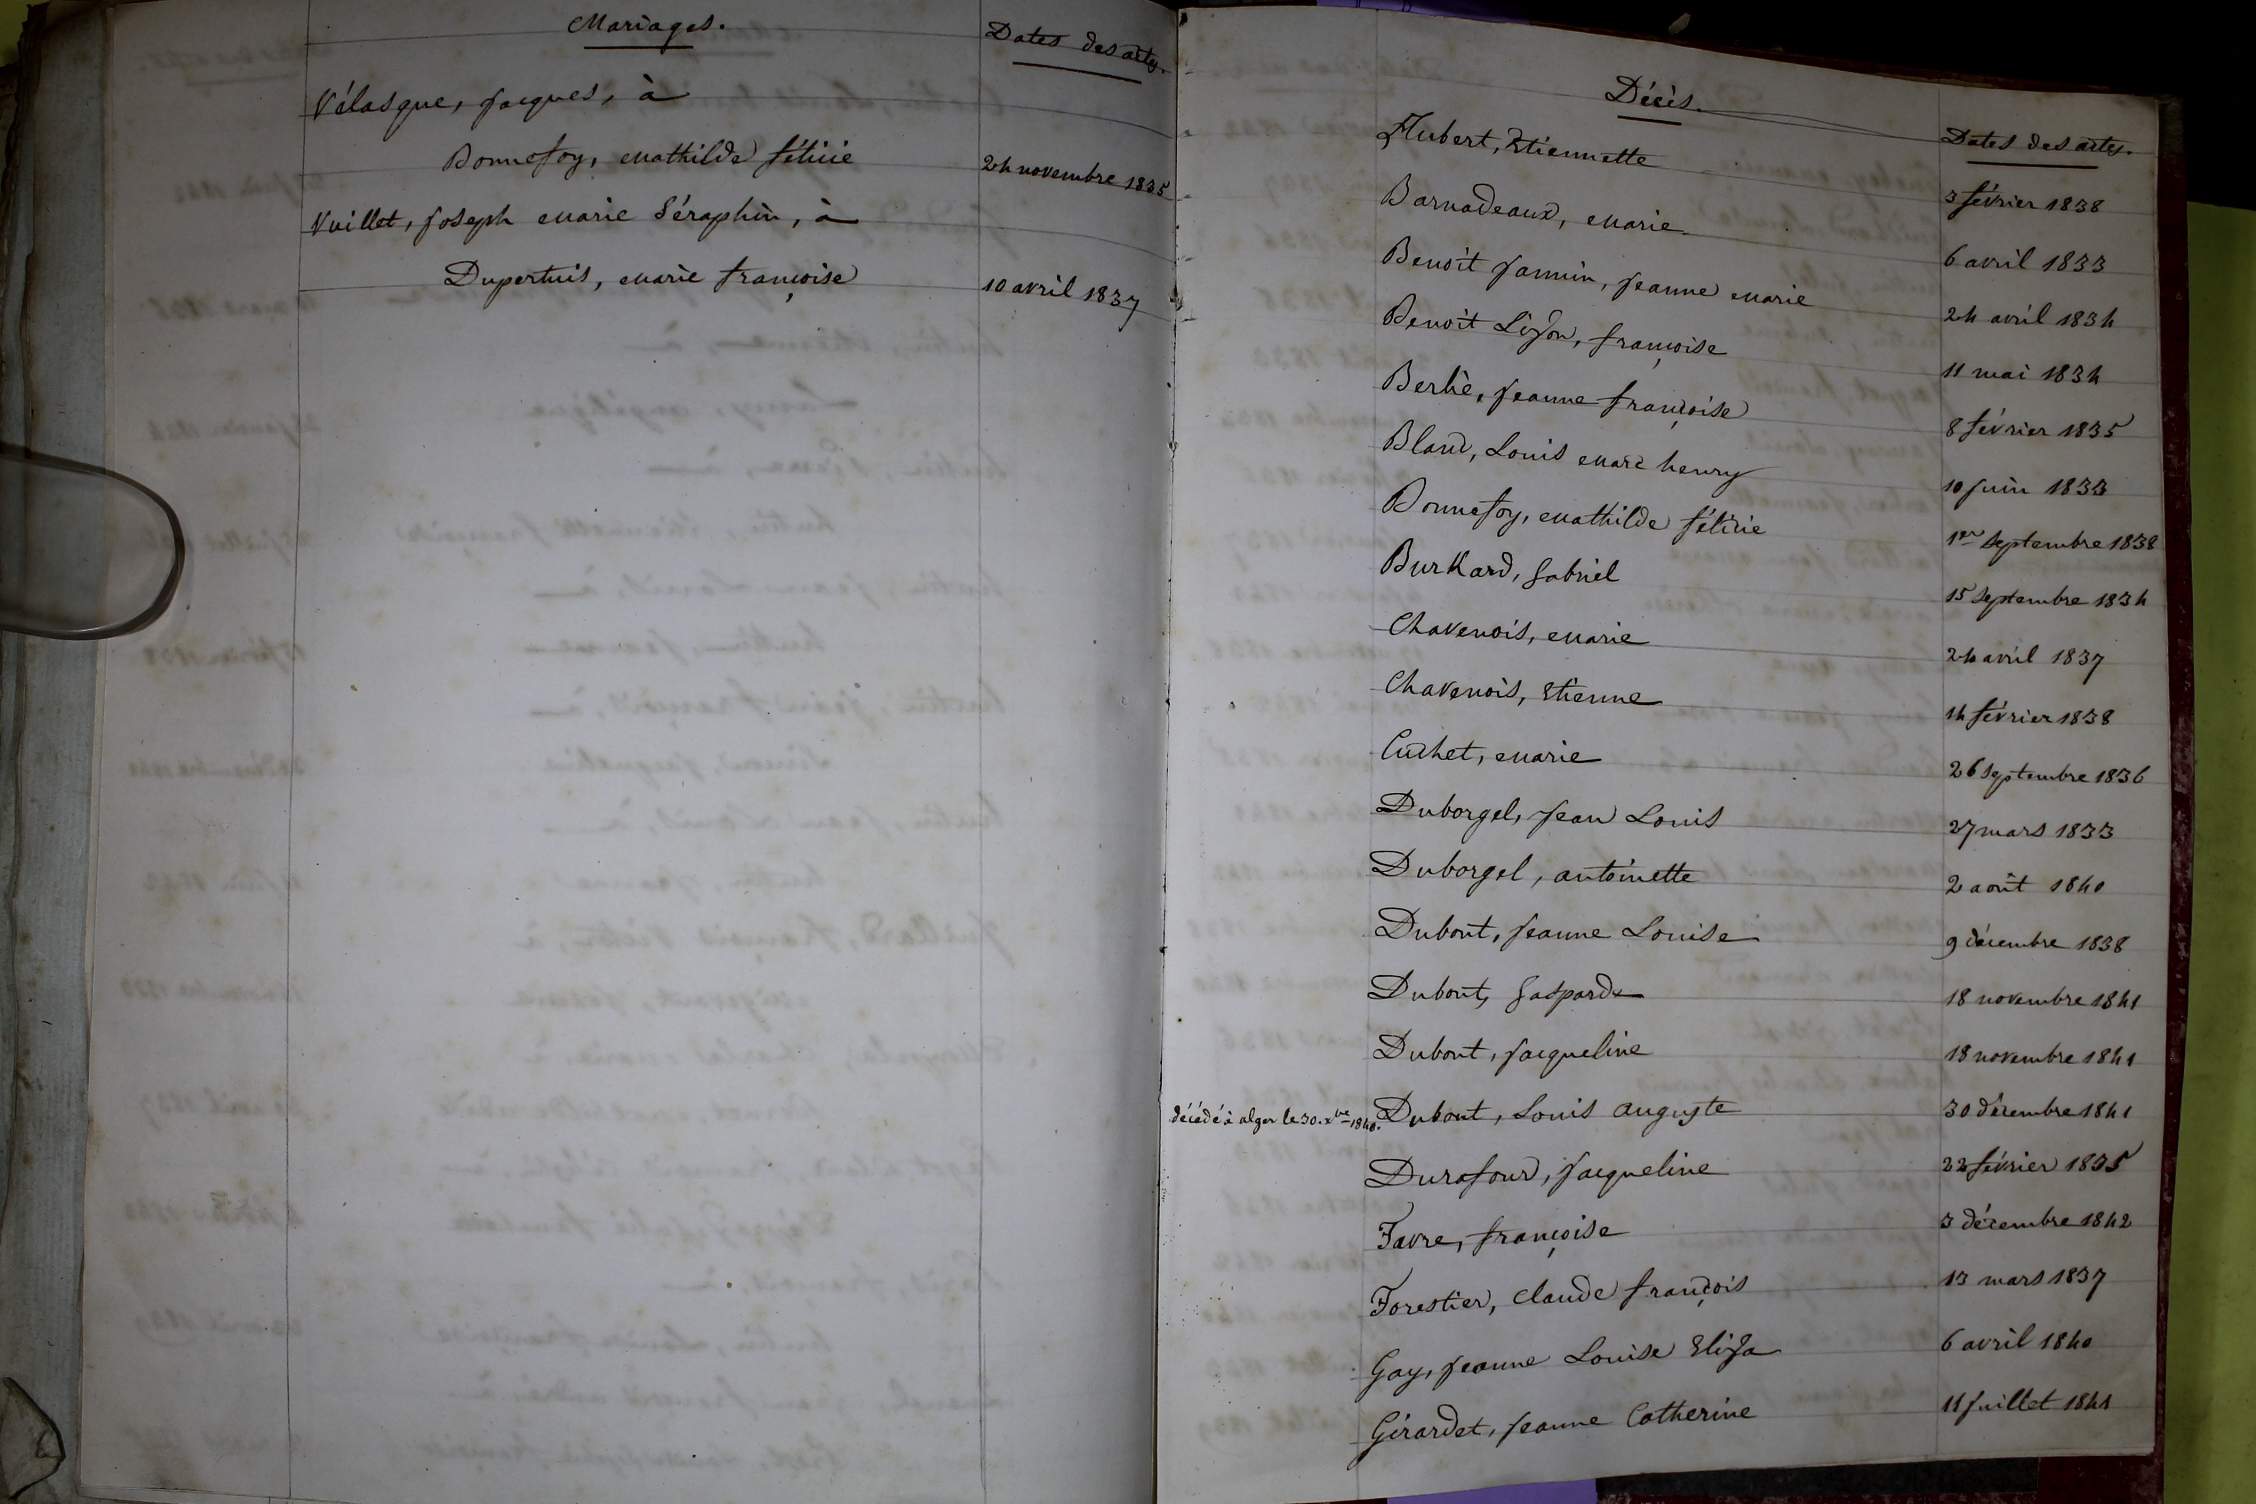 Mariages.
Dates des actes.
Vélasque, Jacques, à
Bonnefoy, Mathilde félicie
24 novembre 1835
Vuillet, Joseph Marie Séraphin, à
Dupertuis, Marie françoise
10 avril 1837
Décès.
Dates des actes.
Aubert, Etiennette
3 février 1838
Barnadeaux, Marie
6 avril 1833
Benoit Jannin, Jeanne Marie
24 avril 1834
Benoit Lizon, françoise
11 mai 1834
Berlie, Jeanne françoise
8 février 1835
Bland, Louis Marc henry
10 juin 1833
Bonnefoy, Mathilde félicie
1er septembre 1838
Burkard, Gabriel
15 septembre 1834
Chavenois, Marie
24 avril 1837
Chavenois, Etienne
14 février 1838
Cuchet, Marie
26 septembre 1836
Duborgel, Jean Louis
27 mars 1833
Duborgel, antoinette
2 août 1840
Dubout, Jeanne Louise
9 décembre 1838
Dubout, Gasparde
18 novembre 1841
Dubout, Jacqueline
18 novembre 1841
décédé à alger le 30. xbre 1840.
Dubout, Louis auguste
30 décembre 1841
Durafour, Jacqueline
22 février 1835
Favre, françoise
3 décembre 1842
Forestier, claude françois
13 mars 1837
Gay, Jeanne Louise Eliza
6 avril 1840
Girardet, Jeanne Catherine
11 juillet 1841